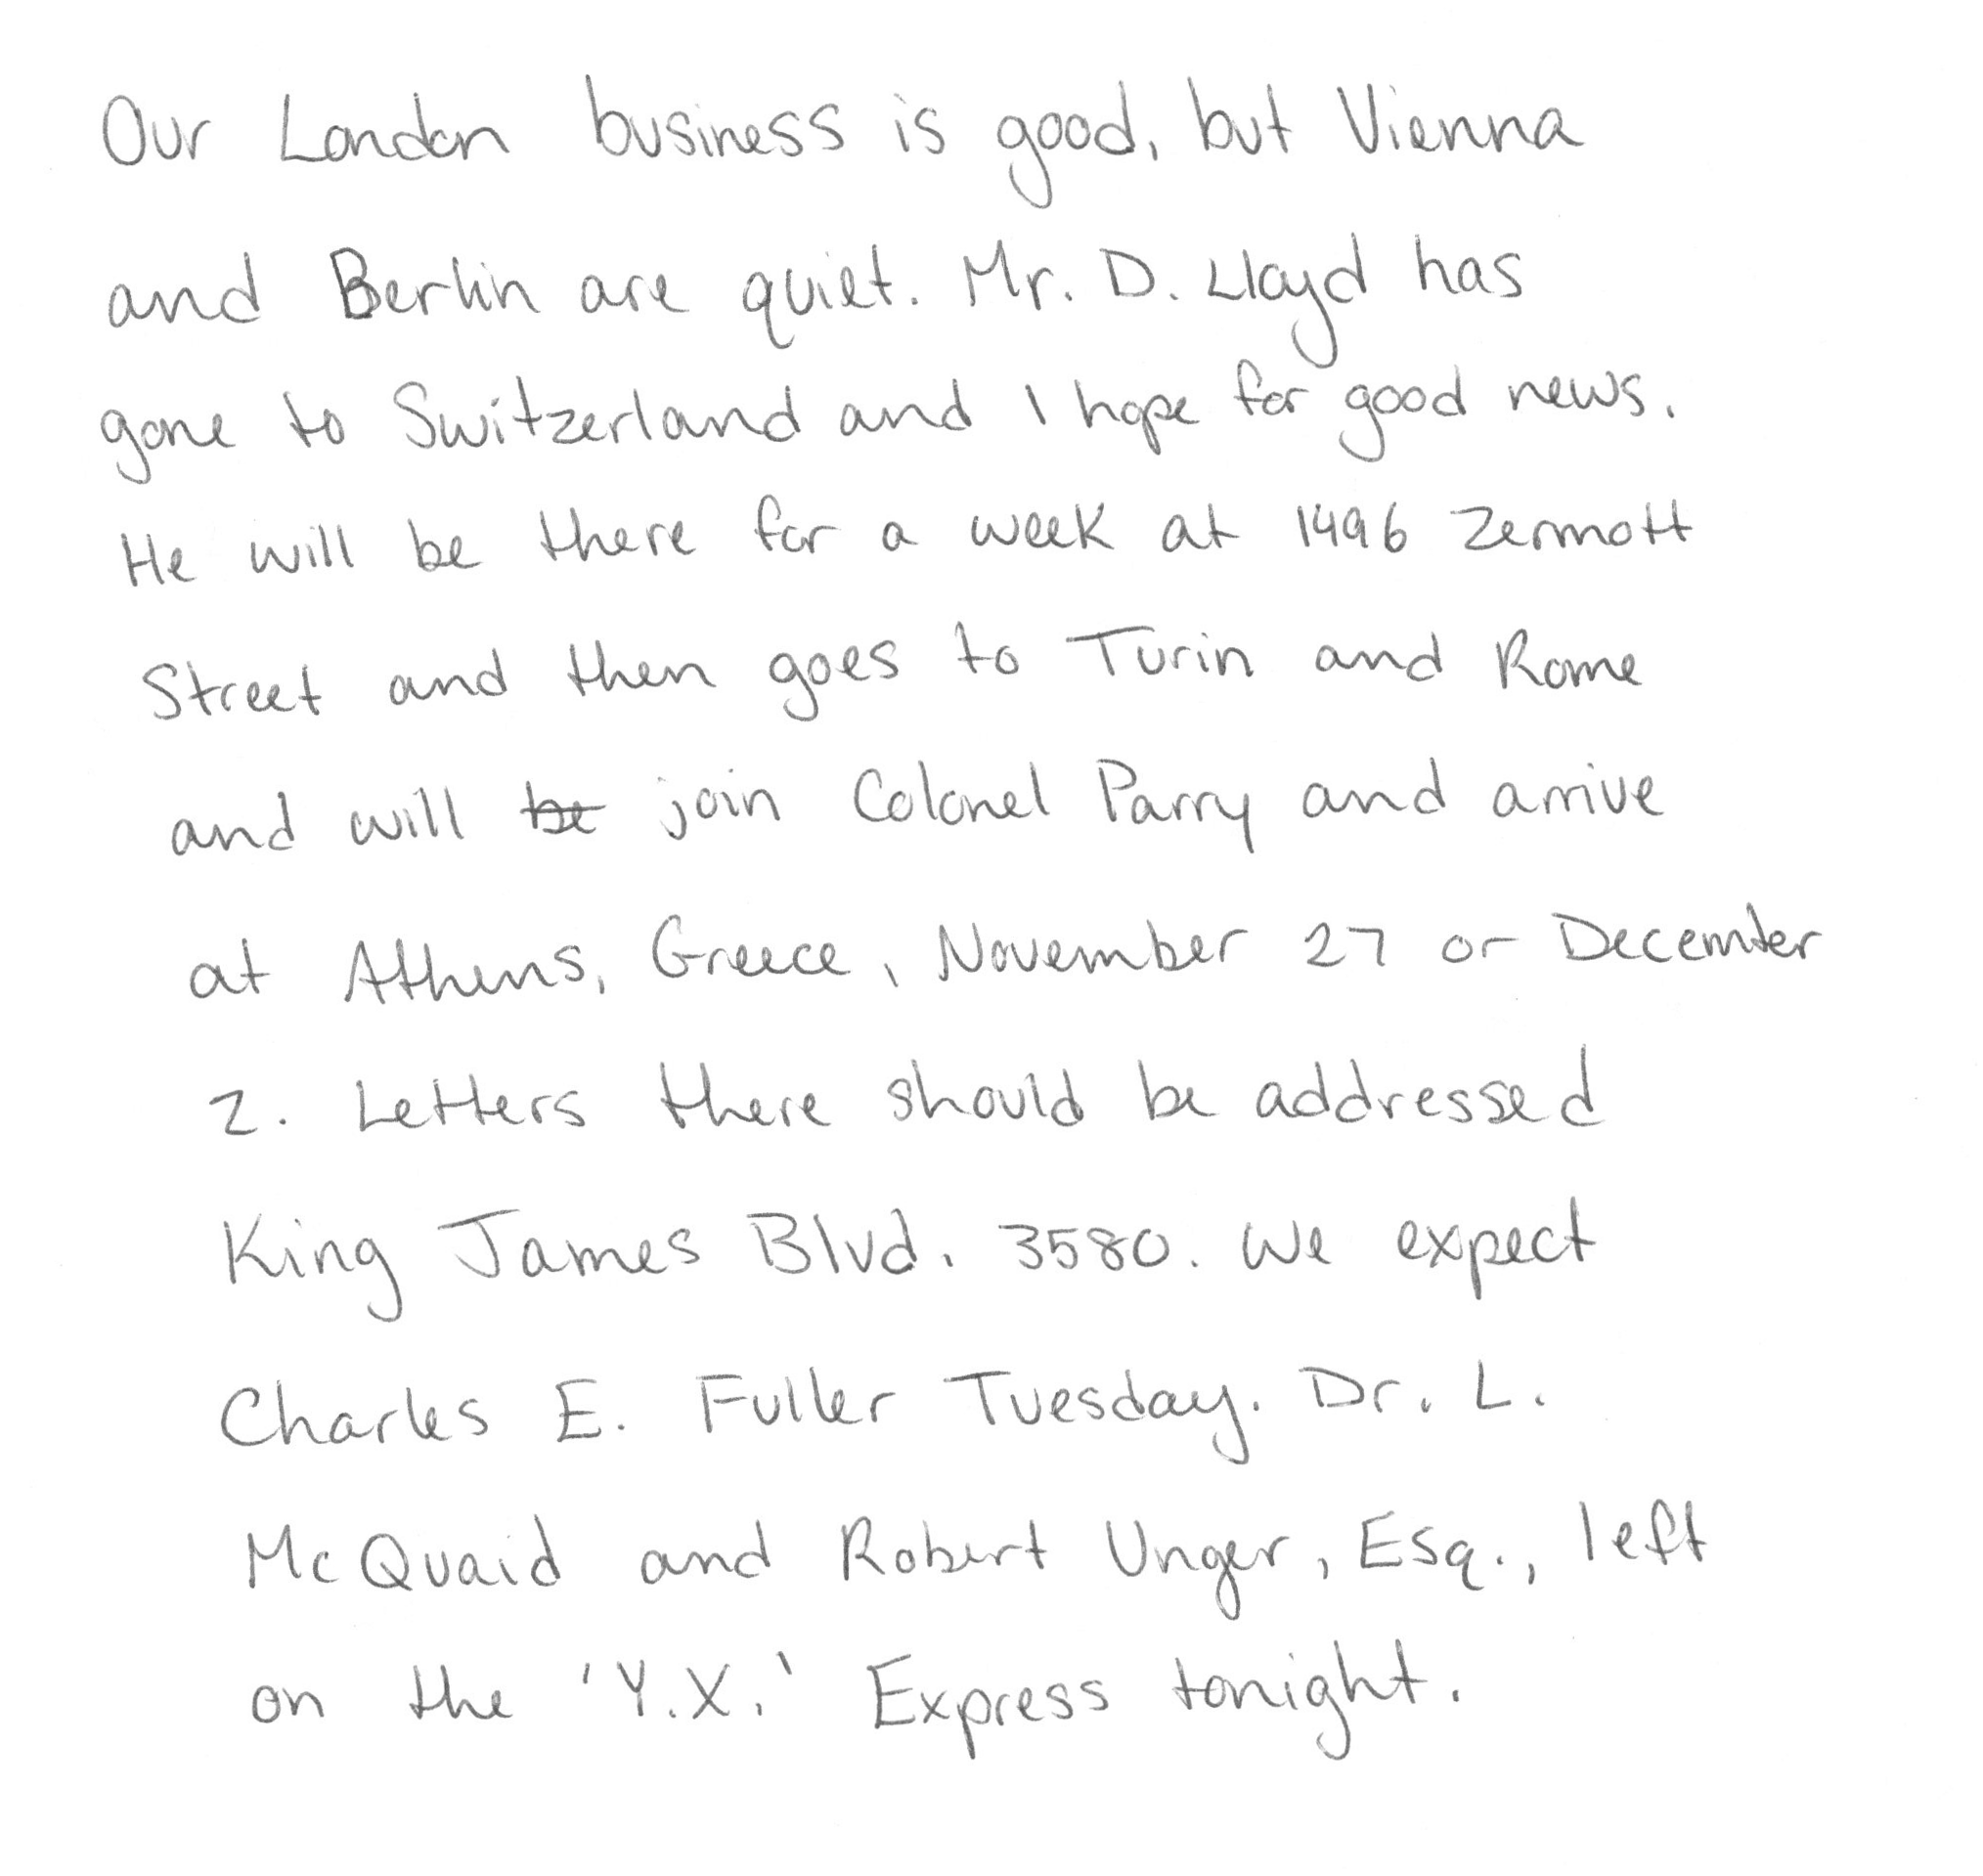 Our London business is good, but Vienna
and Berlin are quiet. Mr. D. Lloyd has
gone to Switzerland and I hope for good news.
He will be there for a week at 1496 Zermott
Street and then goes to Turin and Rome
and will be join Colonel Parry and arrive
at Athens, Greece, November 27 or December
2. Letters there should be addressed
King James Blvd. 3580. We expect
Charles E. Fuller Tuesday. Dr. L.
McQuaid and Robert Unger, Esq., left
on the 'Y.X.' Express tonight.